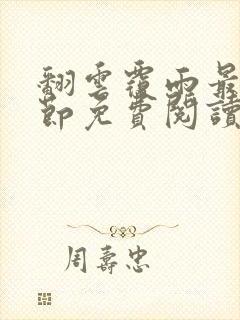 翻雲覆雨最
節免費閱讀
周壽忠